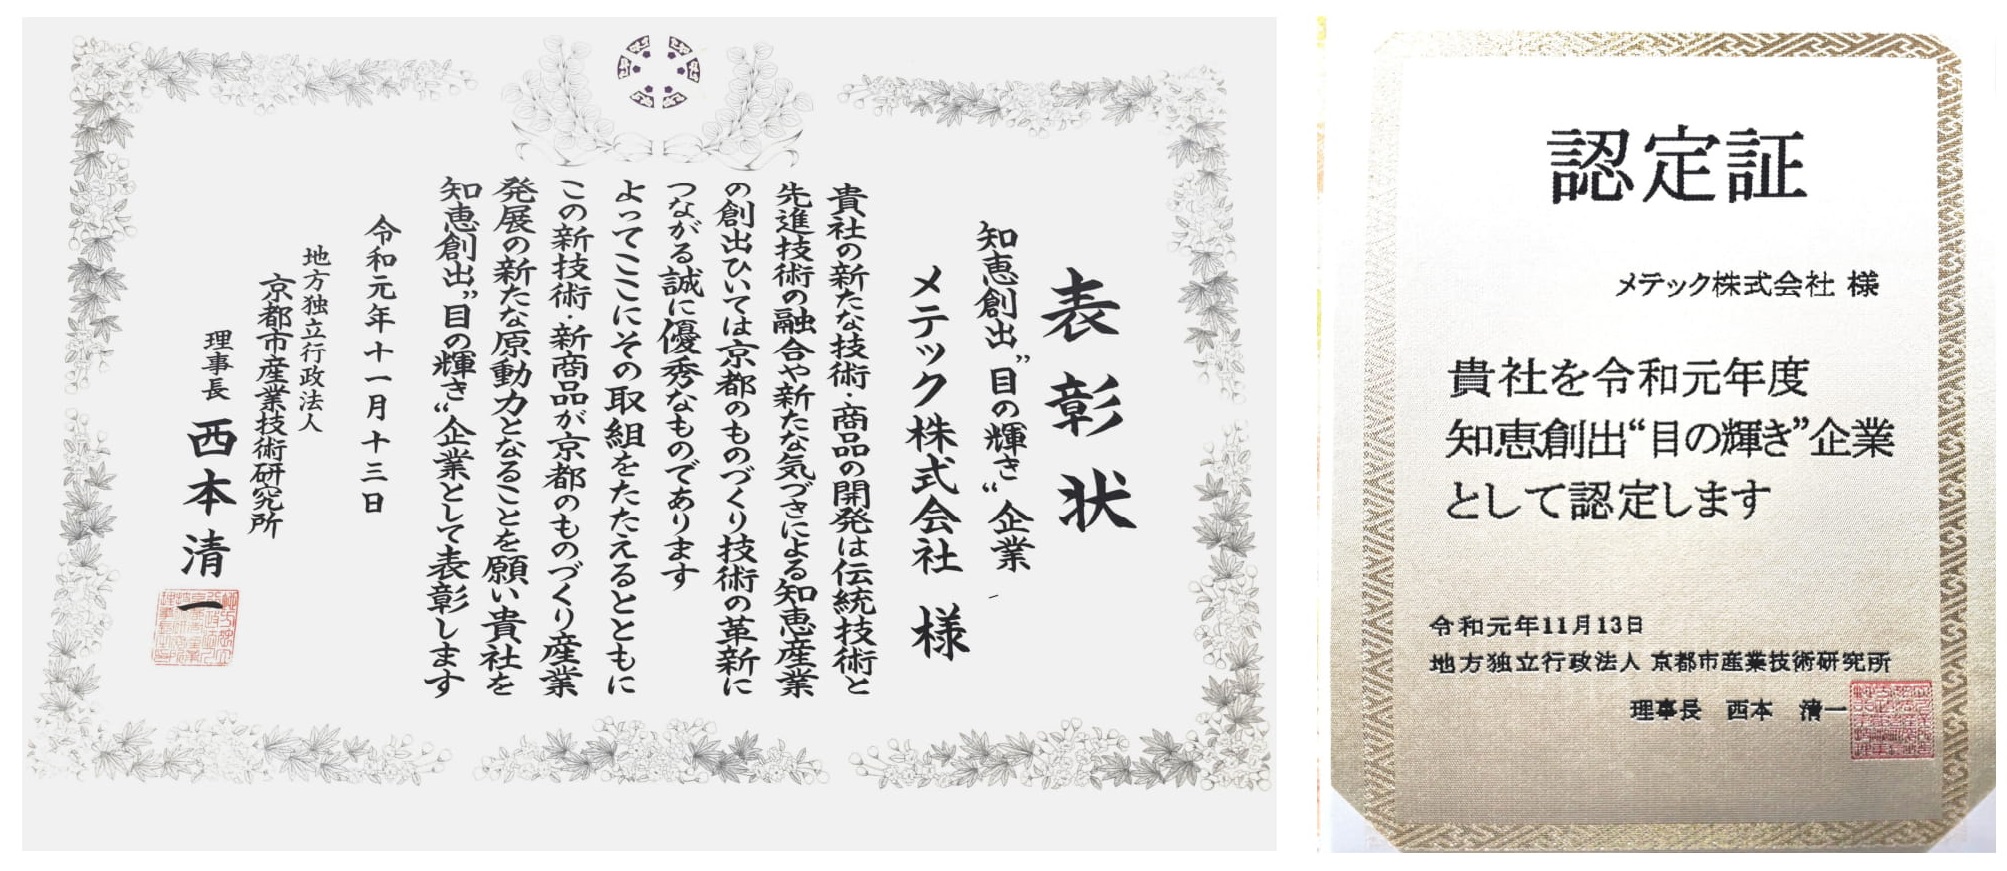 表彰状
知恵創出〝目の輝き〟企業
メテック株式会社 様
貴社の新たな技術・商品の開発は伝統技術と
先進技術の融合や新たな気づきによる知恵産業
の創出ひいては京都のものづくり技術の革新に
つながる誠に優秀なものであります
よってここにその取組をたたえるとともに
この新技術・新商品が京都のものづくり産業
発展の新たな原動力となることを願い貴社を
知恵創出〝目の輝き〟企業として表彰します
令和元年十一月十三日
地方独立行政法人
京都市産業技術研究所
理事長 西本清一
認定証
メテック株式会社 様
貴社を令和元年度
知恵創出“目の輝き”企業
として認定します
令和元年11月13日
地方独立行政法人 京都市産業技術研究所
理事長 西本 清一